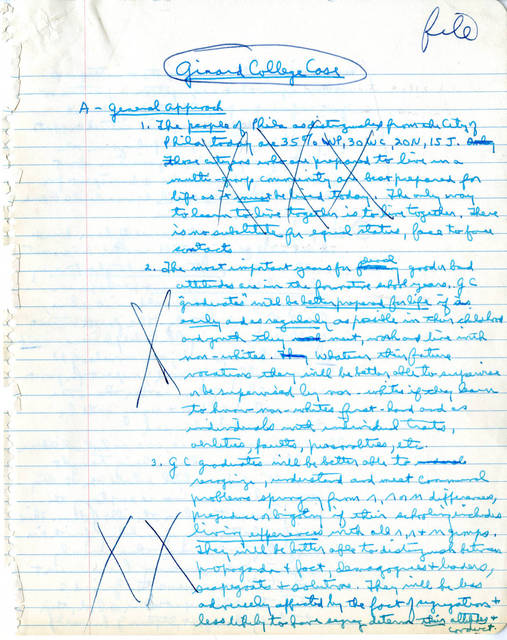 file
Girard College Case
A - General Approach
1. The people of Phila as distinguished from the City of
Phila today are 35% WP, 30 WC, 20N, 15 J.
Those citizens who are prepared to live in a
multi-group community are best prepared for
life as it must be lived today. The only way
to learn to live together is to live together. There
is no substitute for equal status, face to face
contacts
2. The most important years for good or bad
attitudes are in the formative school years. GC
"graduates" will be better prepared for life if as
early and as regularly as possible in their childhood
and youth they meet, work and live with
non-whites. Whatever their future
vocations they will be better able to supervise
or be supervised by non-whites if they learn
to know non-whites first-hand and as
individuals with individual traits,
abilities, faults, personalities, etc.
3. GC graduates will be better able to
recognize, understand and meet communal
problems springing from r, r or n differences,
prejudice or bigotry if their schooling includes
living experiences with all r, r + n groups.
They will be better able to distinguish between
propaganda + fact, demagogues + leaders,
scapegoats + solutions. They will be less
adversely affected by the fact of segregation +
less likely to have segreg determ their attitudes +
conduct.